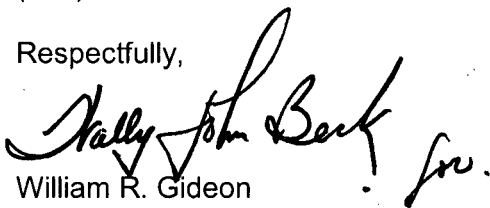 Respectfully,
Wally John Beck for.
William R. Gideon